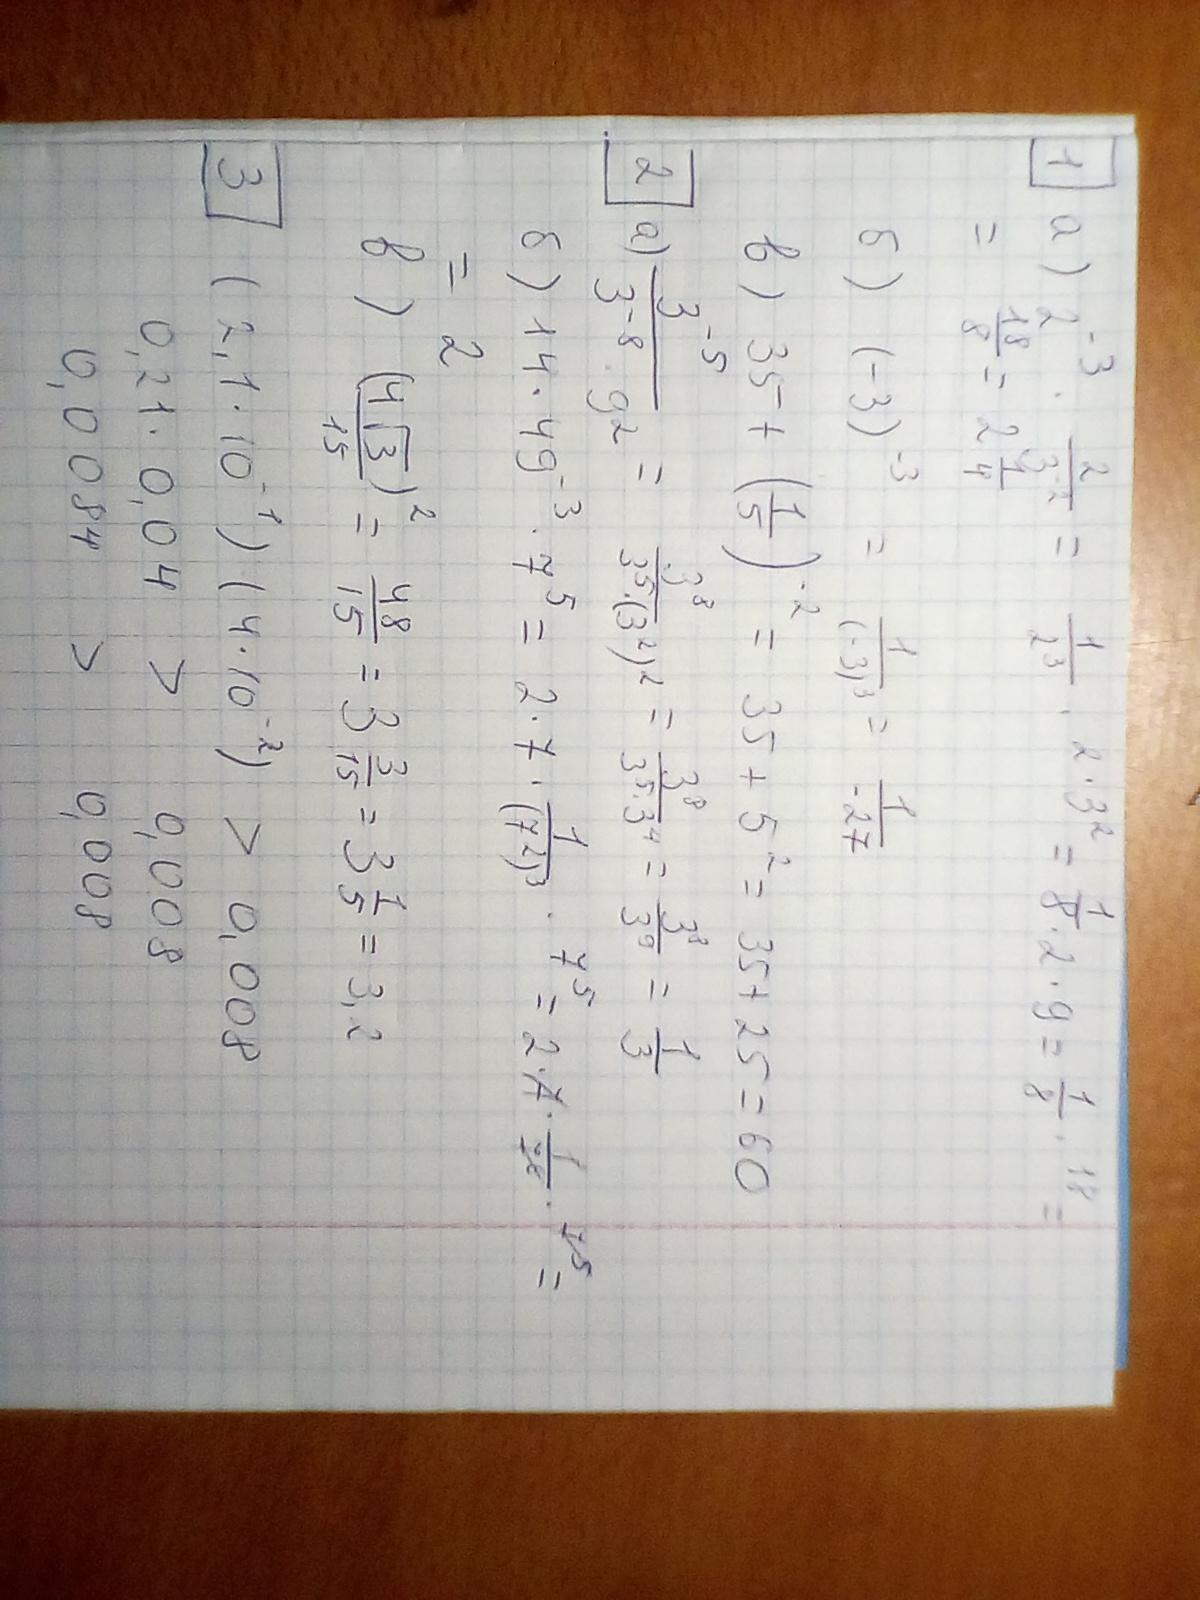 1 а) 2⁻³ · 2/3⁻² = 1/2³ · 2·3² = 1/8 · 2 · 9 = 1/8 · 18 =
= 18/8 = 2 1/4
б) (-3)⁻³ = 1/(-3)³ = 1/-27
в) 35 + (1/5)⁻² = 35 + 5² = 35 + 25 = 60
2 а) 3⁻⁵/3⁻⁸·9² = 3⁸/3⁵·(3²)² = 3⁸/3⁵·3⁴ = 3⁸/3⁹ = 1/3
б) 14·49⁻³·7⁵ = 2·7·1/(7²)³ · 7⁵ = 2·7·1/7⁶ · 7⁵ =
= 2
в) (4√3)²/15 = 48/15 = 3 3/15 = 3 1/5 = 3,2
3 (2,1·10⁻¹)(4·10⁻²) > 0,008
0,21·0,04 > 0,008
0,0084 > 0,008